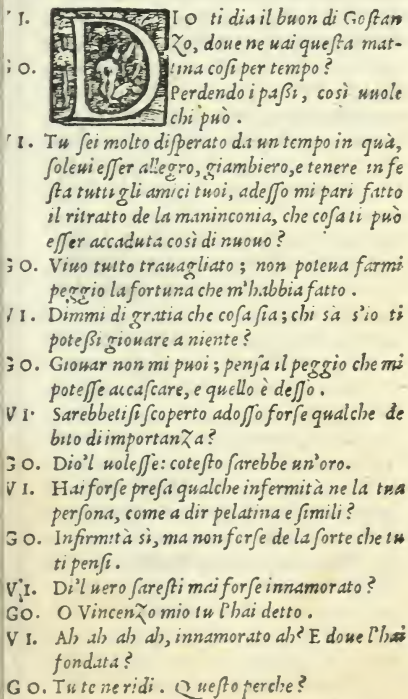 VI. DIO ti dia il buon di Goſtan
Zo, doue ne uai queſta mat-
GO. tina coſi per tempo?
Perdendo i paßi, così uuole
chi può.
VI. Tu ſei molto diſperato da un tempo in quà,
ſoleui eſſer allegro, giambiero, e tenere in fe
ſta tutti gli amici tuoi, adeſſo mi pari fatto
il ritratto de la maninconia, che coſa ti può
eſſer accaduta così di nuouo?
GO. Viuo tutto trauagliato; non poteua farmi
peggio la fortuna che m'habbia fatto.
VI. Dimmi di gratia che coſa ſia; chi sà s'io ti
poteßi giouare a niente?
GO. Giouar non mi puoi; penſa il peggio che mi
poteſſe accaſcare, e quello è deſſo.
VI. Sarebbetiſi ſcoperto adoſſo forſe qualche de
bito di importanZa?
GO. Dio'l uoleſſe: coteſto ſarebbe un'oro.
VI. Hai forſe preſa qualche infermità ne la tua
perſona, come a dir pelatina e ſimili?
GO. Infirmità sì, ma non forſe de la ſorte che tu
ti penſi.
VI. Di'l uero ſareſti mai forſe innamorato?
GO. O VincenZo mio tu l'hai detto.
VI. Ah ah ah ah, innamorato ah? E doue l'hai
fondata?
GO. Tu te ne ridi. Queſto perche?